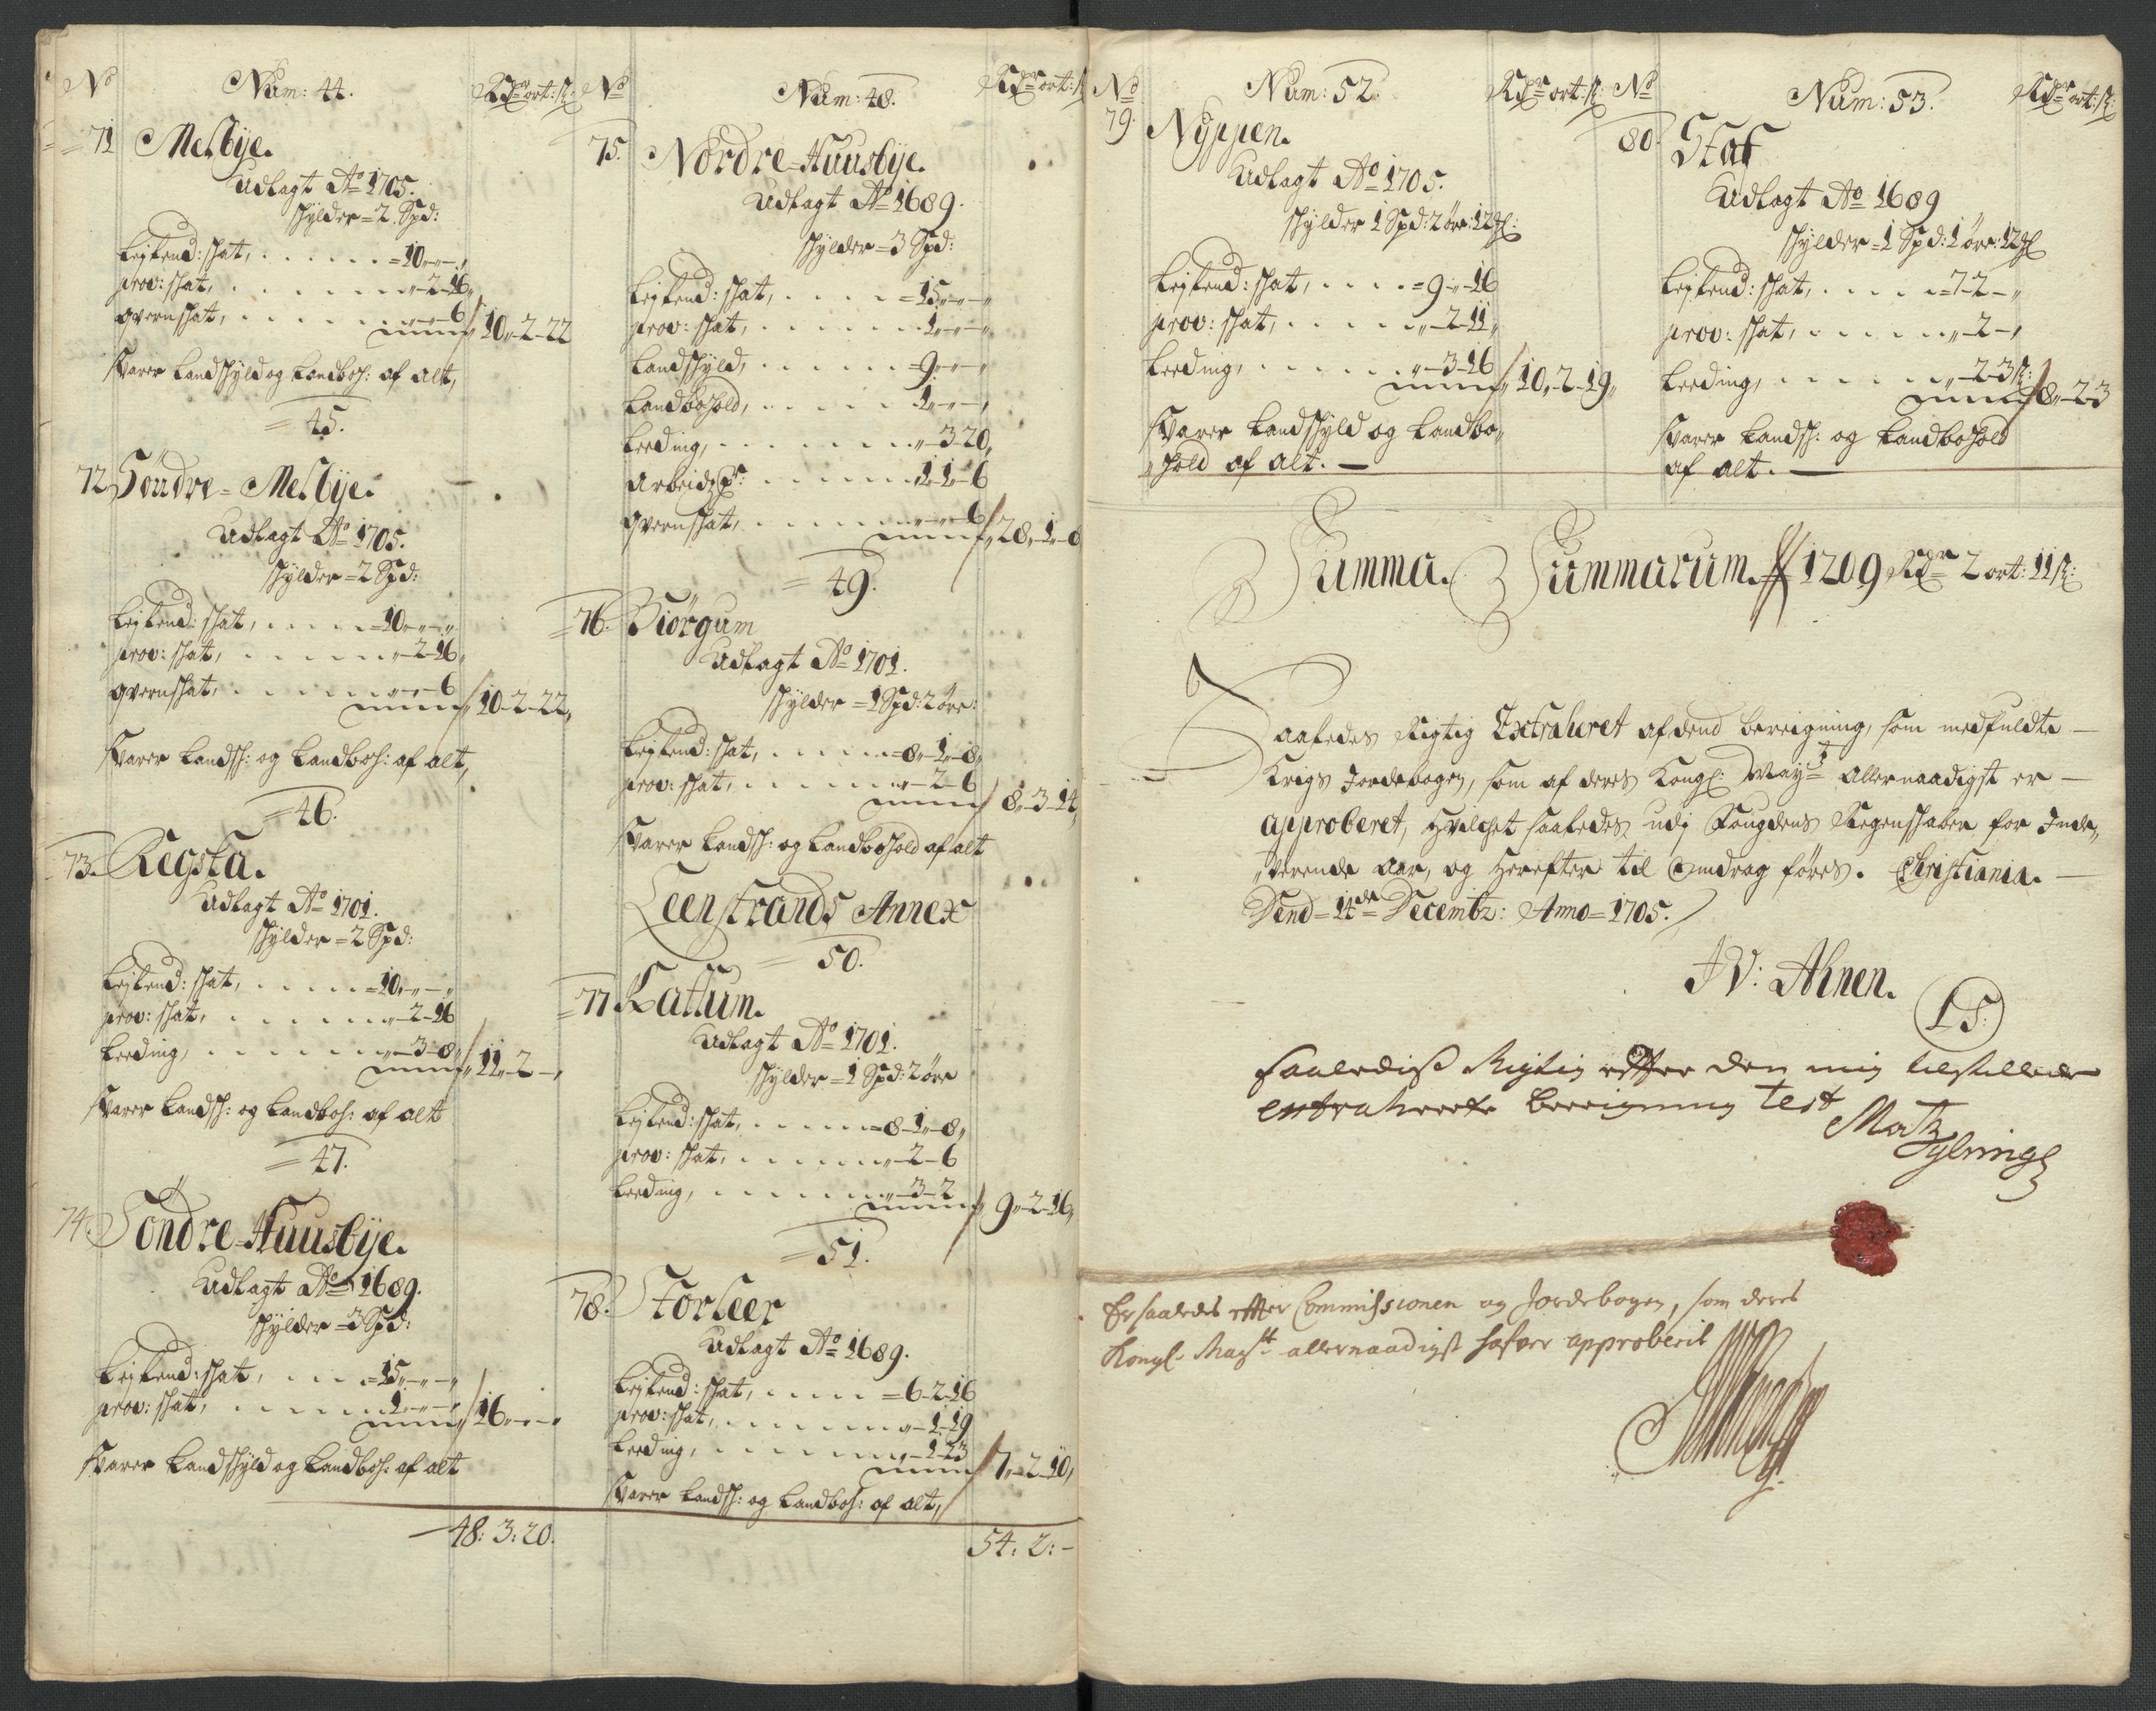 No Num: 44. Rdr ort: s:
71 Melbÿe.
Udlagt Ao 1705.
schÿlder = 2 Spd:
Leilend: schat, . . . . . = 10,,-,,-,,
prov: schat, . . . . . ,,-2-16,,
qvernschat, . . . . . ,,-,,-6 / 10,,-2-22
Svarer Landschÿld og Landboh: af alt,
= 45.
72 Söndre = Melbÿe.
Udlagt Ao 1705.
schÿlder = 2 Spd:
Leilend: schat, . . . . . = 10,,-,,-,,
prov: schat, . . . . . ,,-2-16,,
qvernschat, . . . . . ,,-,,-6 / 10-2-22,,
Svarer Landsch: og Landboh: af alt,
= 46.
73. Regsta.
Udlagt Ao 1701.
schÿlder = 2 Spd:
Leilend: schat, . . . . = 10,,-,,-,,
prov: schat, . . . . . ,,-2-16
Leeding, . . . . . ,,-3-8,, / 11,,-2-,,
Svarer Landsch: og Landboh: af alt
= 47.
74. Söndre-Huusbÿe.
Udlagt Ao 1689.
schÿlder = 3 Spd:
Leilend: schat, . . . = 15,,-,,-,,
prov: schat, . . . . . 1,,-,,-,, / 16,,-,,-,,
Svarer Landschÿld og Landboh: af alt
48: 3: 20.
No Num: 48. Rdr ort: s:
75. Nordre-Huusbÿe.
Udlagt Ao 1689.
schÿlder = 3 Spd:
Leilend: schat, . . . . = 15,,-,,-,,
prov: schat, . . . . . 1,,-,,-,,
Landschÿld, . . . . . = 9,,-,,-,,
Landbohold, . . . . . 1,,-,,-,,
Leeding, . . . . . ,,-3-20,,
Arbeidsp: . . . . . 1,,-1,,-6
qvernschat, . . . . . ,,-,,-6 / 28,,-1,,-8
= 49.
76. Biörgum
Udlagt Ao 1701.
schÿlder = 1 Spd: 2 öre:
Leilend: schat, . . . . = 8,,-1,,-8,,
prov: schat, . . . . . ,,-2-6 / 8,,-3-14,,
Svarer Landsch: og Landbohold af alt
Leenstrands Annex
= 50.
77 Kattum.
Udlagt Ao 1701.
schÿlder = 1 Spd: 2 öre
Leilend: schat, . . . . = 8-1,,-8,,
prov: schat, . . . . . ,,-2-6
Leeding, . . . . . ,,-3-2 / 9,,-2-16,,
= 51.
78. Storleer
Udlagt Ao 1689.
Leilend: schat, . . . . = 6-2-16
prov: schat, . . . . . ,,-1-19
Leeding, . . . . . ,,-1-23 / 7,,-2-10,,
Svarer Landsch: og Landboh: af alt,
54: 2: -
No Num: 52. Rdr ort: s:
79. Nÿppen.
Udlagt Ao 1705.
schÿlder 1 Spd: 2 öre: 12 gl:
Leilend: schat, . . . . = 9-,,-16
prov: schat, . . . . . ,,-2-11,,
Leeding, . . . . . ,,-3-16 / 10,,-2-19,,
Svarer Landschÿld og Landbo,,
,,hold af alt. —
No Num: 53. Rdr ort: s:
80. Staf
Udlagt Ao 1689
schÿlder = 1 Spd: 1 öre: 12 gl
Leilend: schat, . . . . = 7-2-,,
prov: schat, . . . . . ,,-2-,,
Leeding, . . . . . ,,-2-3 s: / 8,,-2-3
Svarer Landsch: og Landbohold
af alt. —
Summa. Summarum. 1209 Rdr 2 ort: 11 s:
Saaledes Rigtig Extraheret af dend bereigning, som medfuldte —
Krigs Jordebogen, som af deres Kongl: Maÿt allernaadigst er —
approberet, hvilchet saaledes udj Fougdens Regenschaber for Inde,,
,,verende Aar, og herefter til Inndrag föres. Christiania. —
Dend = 14de Decembr: Anno = 1705.
J V: Ahnen.
L S:
Saaledis Rigtig effter den mig tilstillede
extraherte bereigning test
Matz Gylning
Er saaledes effter Commissionen og Jordebogen, som deres
Kongl. Mayst allernaadigst hafver approberit